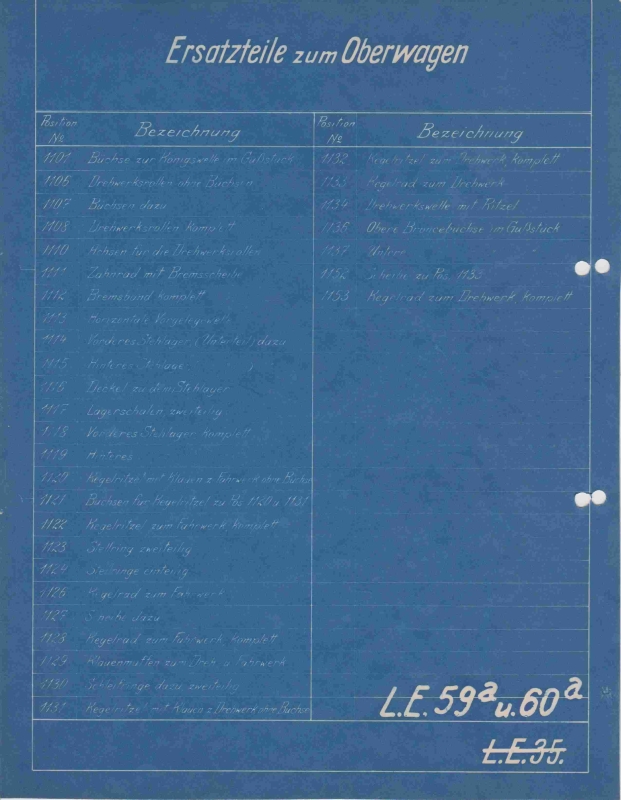 Ersatzteile zum Oberwagen
Position № Bezeichnung
1101 Büchse zur Königswelle im Gußstück
1106 Drehwerksrollen ohne Büchsen
1107 Büchsen dazu
1108 Drehwerksrollen komplett
1110 Achsen für die Drehwerksrollen
1111 Zahnrad mit Bremsscheibe
1112 Bremsband komplett
1113 Horizontale Vorgelegewelle
1114 Vorderes Stehlager, (Unterteil) dazu
1115 Hinteres Stehlager
1116 Deckel zu dem Stehlager
1117 Lagerschalen zweiteilig
1118 Vorderes Stehlager komplett
1119 Hinteres
1120 Kegelritzel mit Klauen z. Fahrwerk ohne Büchse
1121 Büchsen für Kegelritzel zu Pos. 1120 u. 1131
1122 Kegelritzel zum Fahrwerk komplett
1123 Stellring zweiteilig
1124 Stellringe einteilig
1126 Kegelrad zum Fahrwerk
1127 Scheibe dazu
1128 Kegelrad zum Fahrwerk, komplett
1129 Klauenmuffen zum Dreh- u. Fahrwerk
1130 Schleifringe dazu zweiteilig
1131 Kegelritzel mit Klauen z. Drehwerk ohne Büchse
Position № Bezeichnung
1132 Kegelritzel zum Drehwerk, komplett
1133 Kegelrad zum Drehwerk
1134 Drehwerkswelle mit Ritzel
1136 Obere Broncebüchse im Gußstück
1137 Untere " "
1152 Scheibe zu Pos. 1133
1153 Kegelrad zum Drehwerk komplett
L.E. 59a u. 60a
L.E. 35.